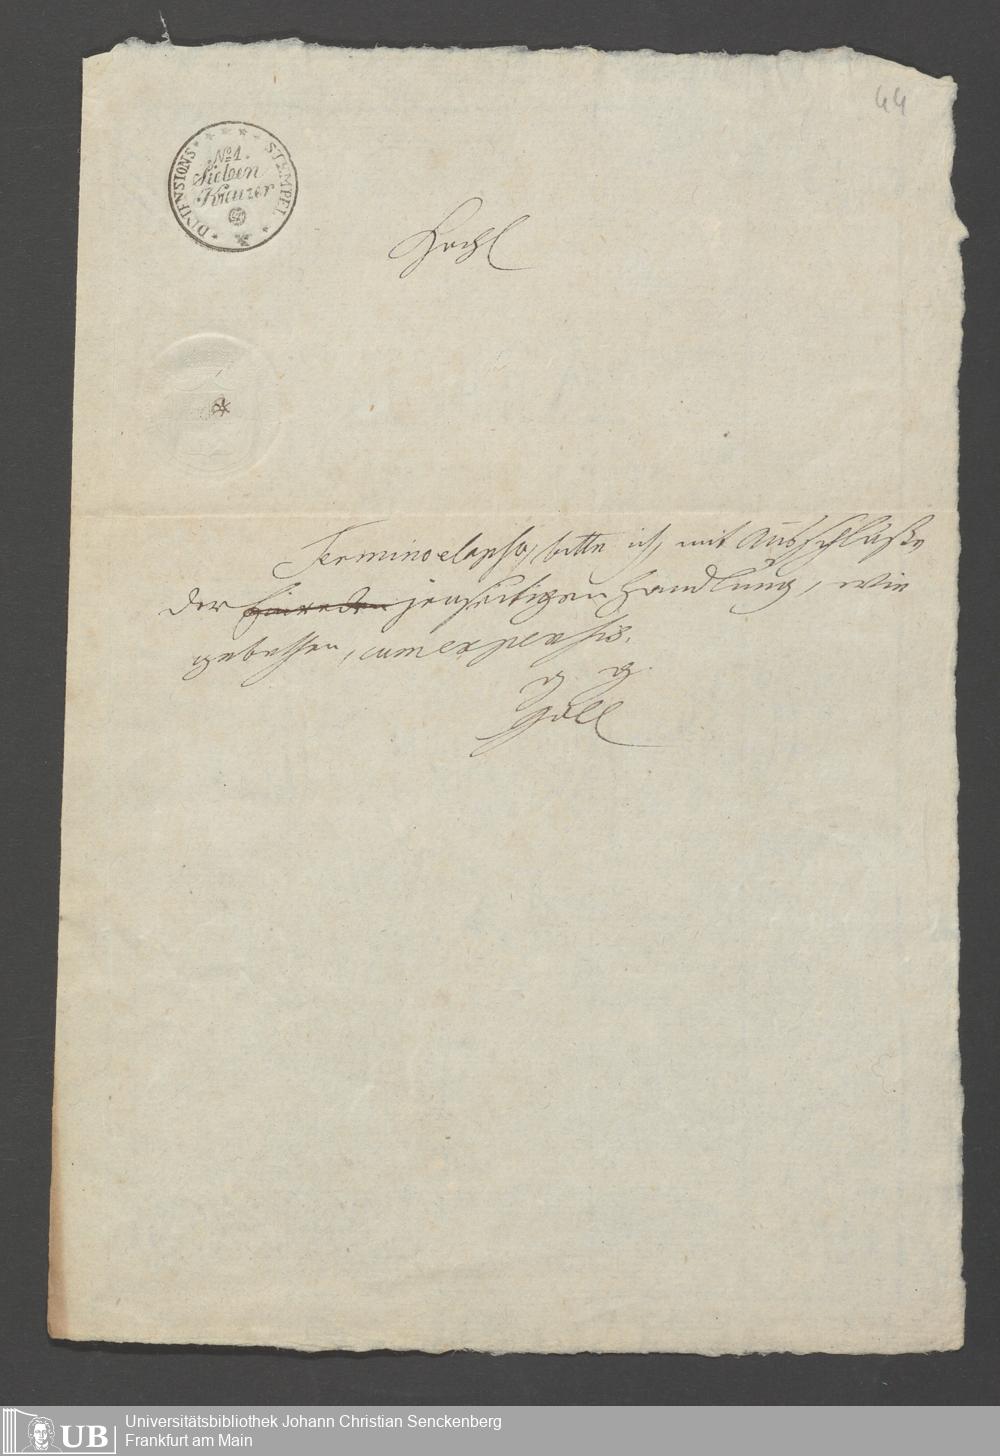 44
DIMENSIONS STEMPEL
No 1.
Sieben
Kreuzer
Hochl
Termino elapso, bitte ich, mit Ausschluße
der Einreden jenseitigen Handlung, wie
gebethen, cum expensis.
UB
Universitätsbibliothek Johann Christian Senckenberg
Frankfurt am Main